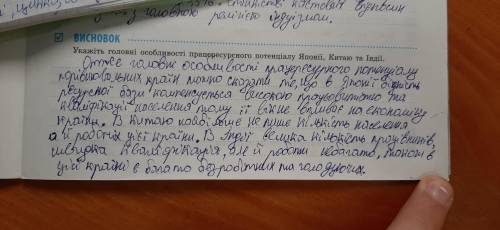 з головною релігією індуїзмом.
ВИСНОВОК
Укажіть головні особливості працересурсного потенціалу Японії, Китаю та Індії.
Отже головне особливості працересурсного потенціалу
країн можна сказати те, що в Японії бідність
ресурсної бази компенсується високою працьовитістю та
кваліфікації населення тому її вікно впливає на економіку
країни. В Китаю найбільше не лише кількість населення
а й робочих цієї країни. В Індії велика кількість працівників,
швидка кваліфікація, але й роботи небагато, також в
цій країні є багато безробітних та голодуючих.